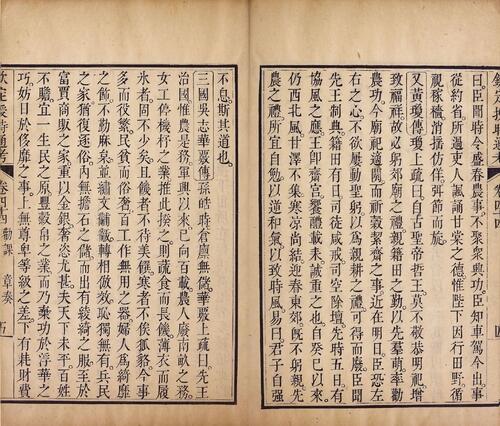 曰臣聞時令盛春農事不聚衆興功臣知車駕今出事
從約省所過吏人諷誦甘棠之德惟陛下因行田野循
視稼穡消搖仿佯弭節而旋。
又黃瓊傳瓊上疏曰自古聖帝哲王莫不敬恭明祀增
致福祥故必躬郊廟之禮親籍田之勤以先羣萌率勸
農功今廟祀適闋而祈穀絜齋之事近在明日臣恐左
右之心不欲屢動聖躬以為親耕之禮可得而廢臣聞
先王制典籍田有日司徒咸戒司空除壇先時五日有
協風之應王即齋宮饗醴載耒誠重之也自癸巳以來
仍西北風甘澤不集寒涼尚結迎春東郊既不躬親先
農之禮所宜自勉以逆和氣以致時風易曰君子自強
不息斯其道也。
三國吳志華覈傳孫皓時倉廩無儲華覈上疏曰先王
治國惟農是務軍興以來已向百載農人廢南畝之務
女工停機杼之業推此揆之則蔬食而長饑薄衣而履
冰者固不少矣且饑者不待美饌寒者不俟狐貉今事
多而役繁民貧而俗奢百工作無用之器婦人為綺靡
之飾不勤麻枲並繡文黼黻轉相倣效恥獨無有兵民
之家猶復逐俗內無擔石之儲而出有綾綺之服至於
富賈商販之家重以金銀奢恣尤甚夫天下未平百姓
不贍宜一生民之原豐穀帛之業而乃棄功於浮華之
巧妨日於侈靡之事上無尊卑等級之差下有耗財費
欽定授時通考 卷四十四 勸課 章奏